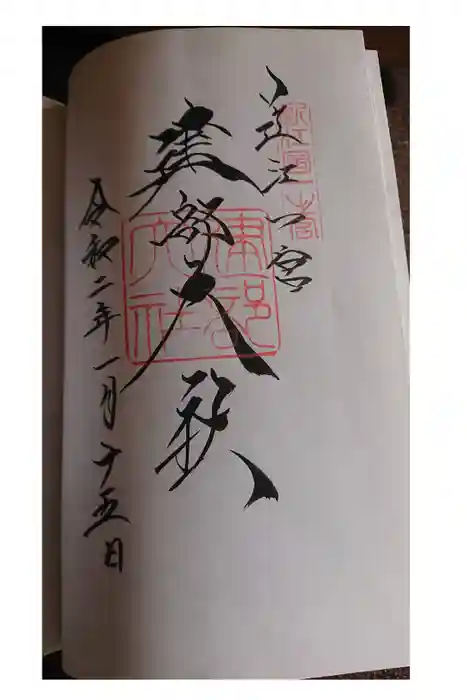 近江一宮
建部大社
令和二年一月十五日
近江國一之宮
建部大社